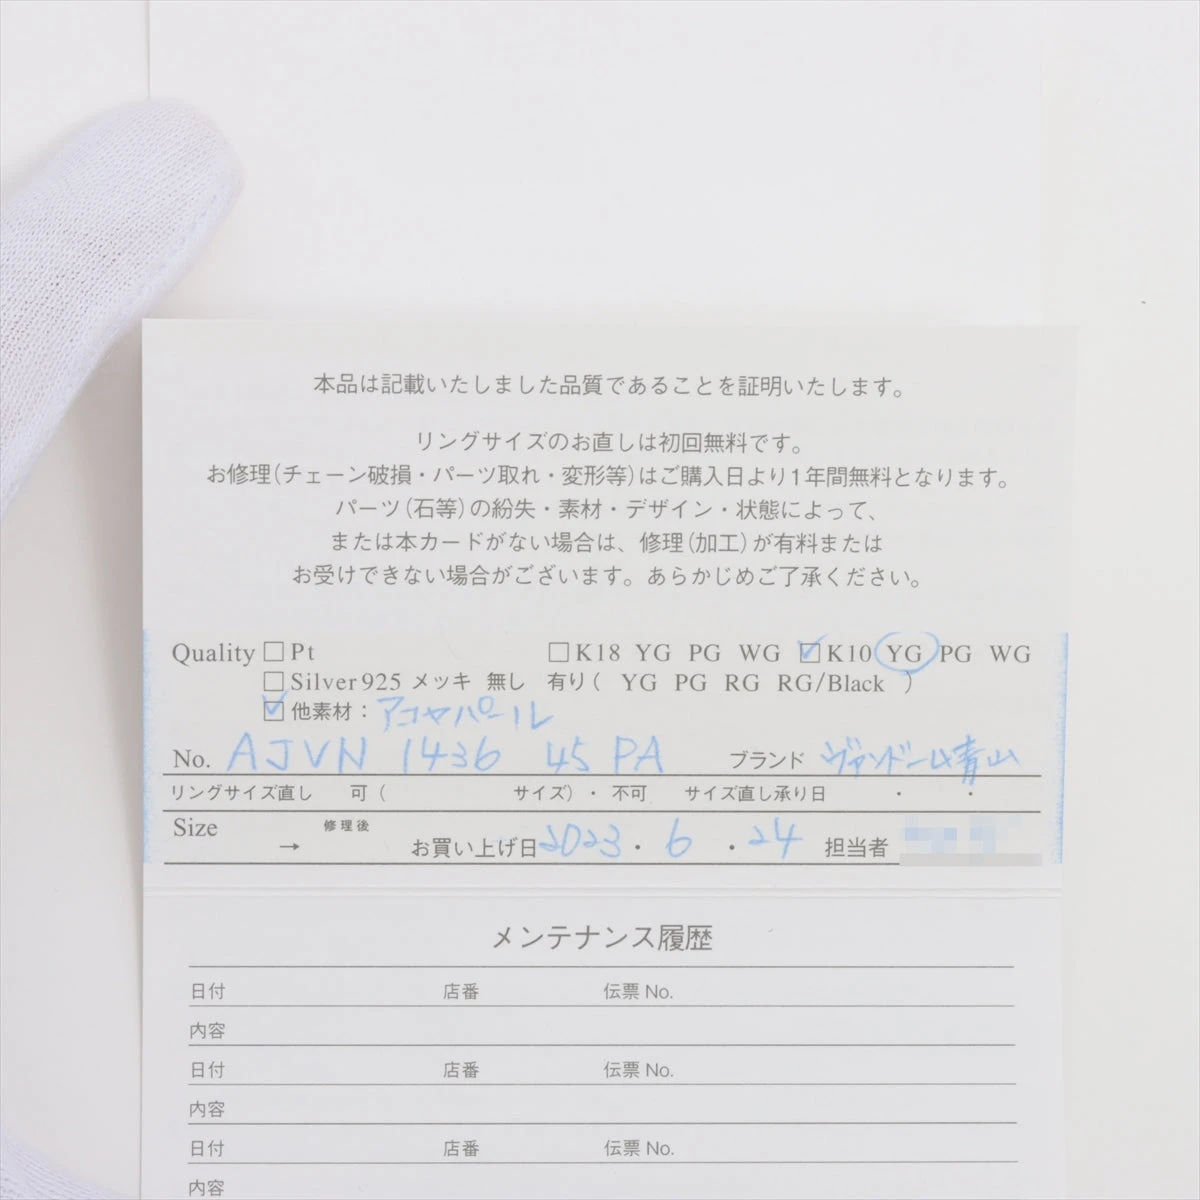 本品は記載いたしました品質であることを証明いたします。
リングサイズのお直しは初回無料です。
お修理(チェーン破損・パーツ取れ・変形等)はご購入日より1年間無料となります。
パーツ(石等)の紛失・素材・デザイン・状態によって、
または本カードがない場合は、修理(加工)が有料または
お受けできない場合がございます。あらかじめご了承ください。
Quality □Pt □K18 YG PG WG ☑K10 YG PG WG
□Silver925 メッキ 無し 有り( YG PG RG RG/Black )
☑他素材：アコヤパール
No. AJVN 1436 45 PA ブランド ヴァンドーム青山
リングサイズ直し 可( サイズ)・不可 サイズ直し承り日 ・ ・
Size → 修理後 お買い上げ日 2023・6・24 担当者
メンテナンス履歴
日付 店番 伝票 No.
内容
日付 店番 伝票 No.
内容
日付 店番 伝票 No.
内容